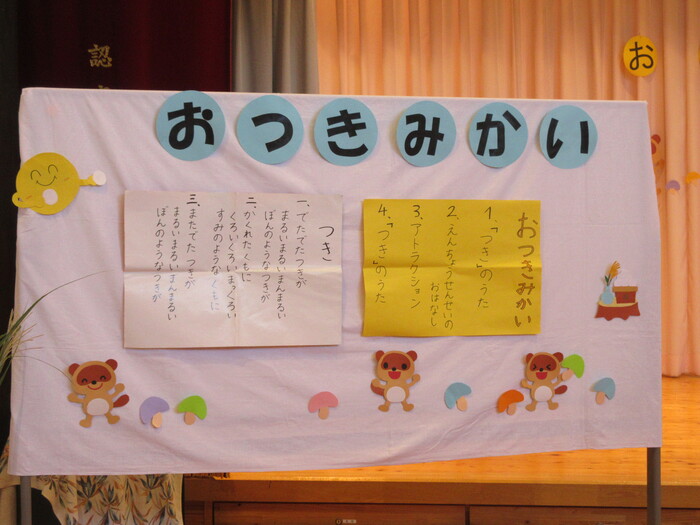 認
お
おつきみかい
おつきみかい
1.「つき」のうた
2.えんちょうせんせいの
おはなし
3.アトラクション
4.「つき」のうた
つき
一、でたでた つきが
まるいまるいまんまるい
ぼんのようなつきが
二、かくれたくもに
くろいくろいまっくろい
すみのようなくもに
三、またでた つきが
まるいまるいまんまるい
ぼんのようなつきが